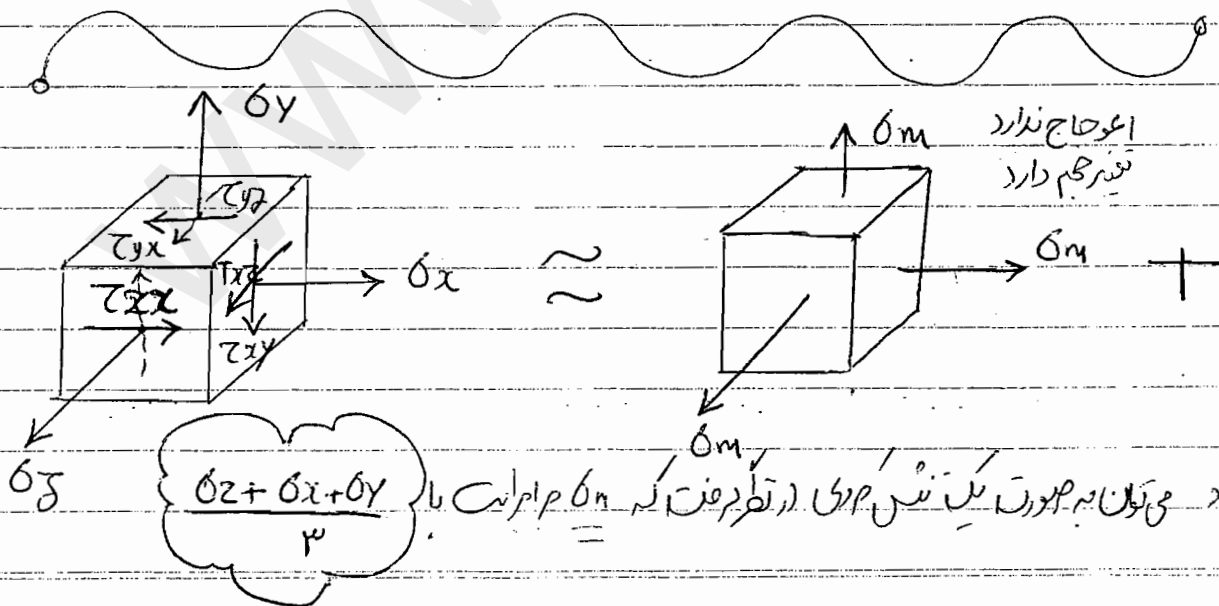 σy
τyz
τyx
τxz
τzx
τxy
σx
σz
≈
σm
σm
σm
اعوجاج ندارد
تغییر حجم دارد
+
می توان به صورت یک تنش مرکزی در نظر گرفت که σm برابر است با
σz + σx + σy
۳